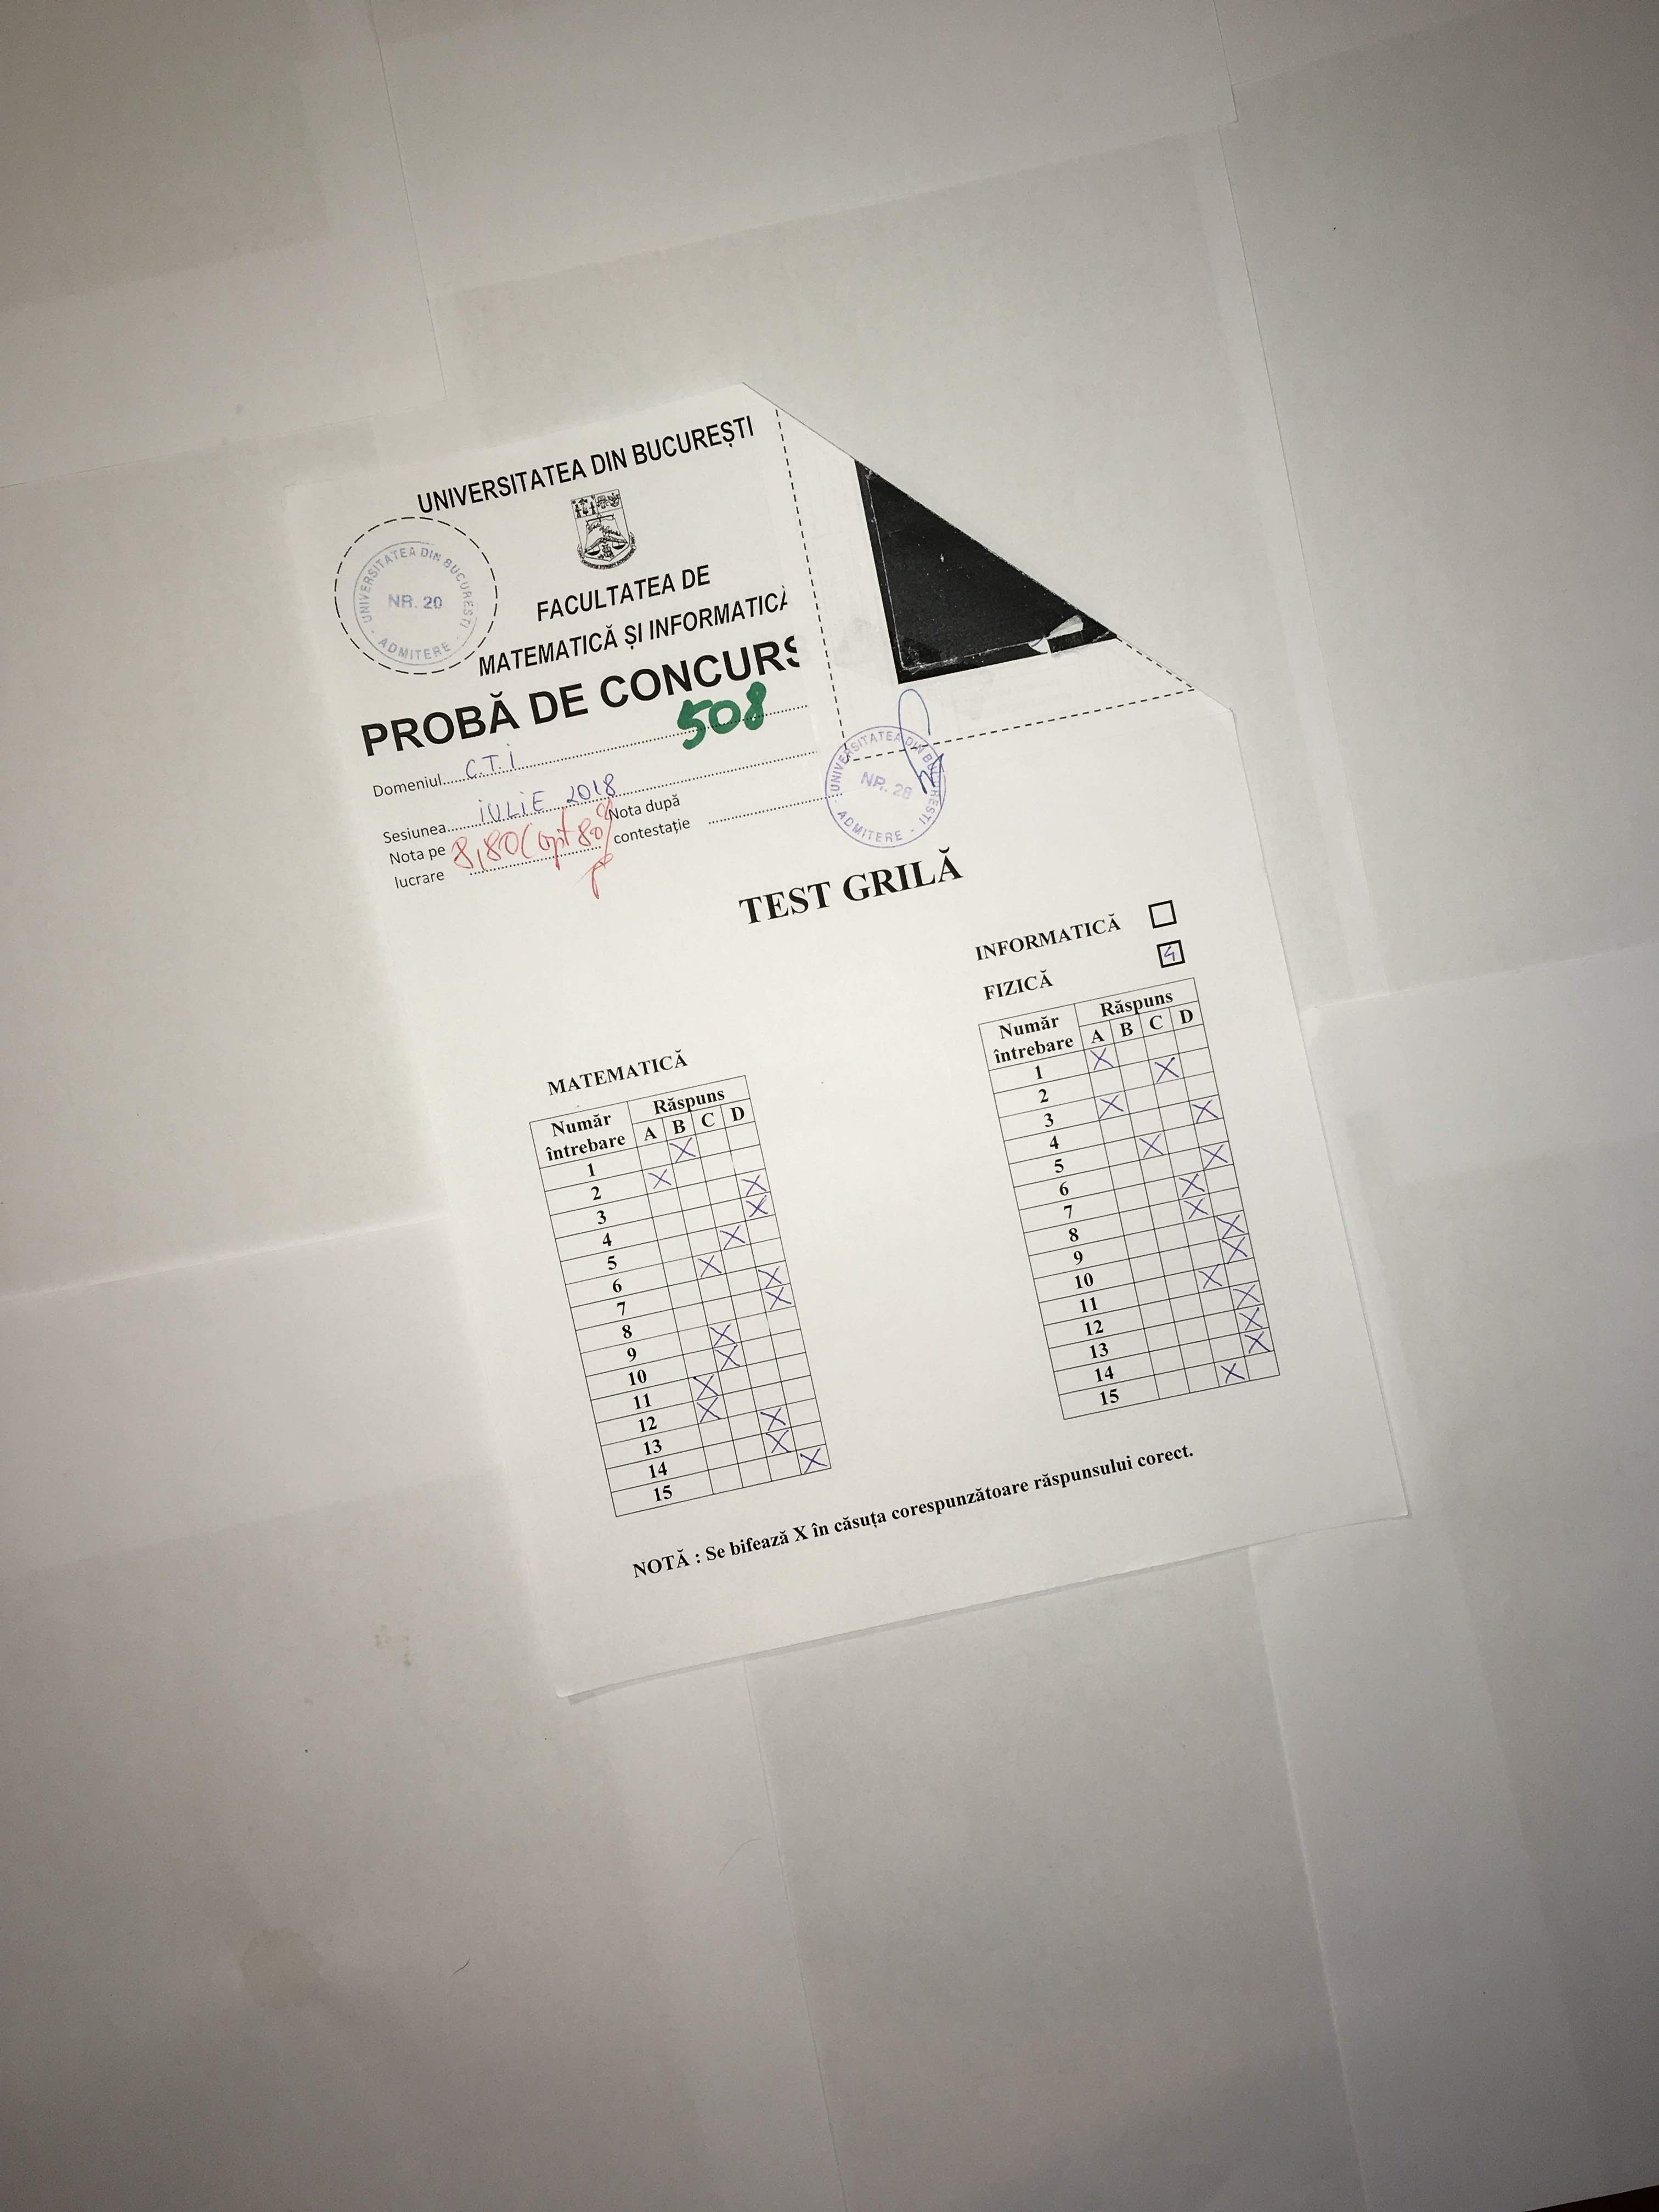 UNIVERSITATEA DIN BUCUREȘTI
UNIVERSITATEA DIN BUCUREȘTI
NR. 20
ADMITERE
FACULTATEA DE
MATEMATICĂ ȘI INFORMATICĂ
PROBĂ DE CONCURS
508
Domeniul C.T.i
Sesiunea iULiE 2018
Nota pe lucrare 8,80 (opt 80%
Nota după contestație
UNIVERSITATEA DIN BUCUREȘTI
NR. 26
ADMITERE
TEST GRILĂ
INFORMATICĂ
FIZICĂ 4
Număr întrebare Răspuns
A B C D
1 X
2 X
3 X
4 X
5 X
6 X
7 X
8 X
9 X
10 X
11 X
12 X
13 X
14 X
15 X
MATEMATICĂ
Număr întrebare Răspuns
A B C D
1 X
2 X
3 X
4 X
5 X
6 X
7 X
8 X
9 X
10 X
11 X
12 X
13 X
14 X
15 X
NOTĂ : Se bifează X în căsuța corespunzătoare răspunsului corect.